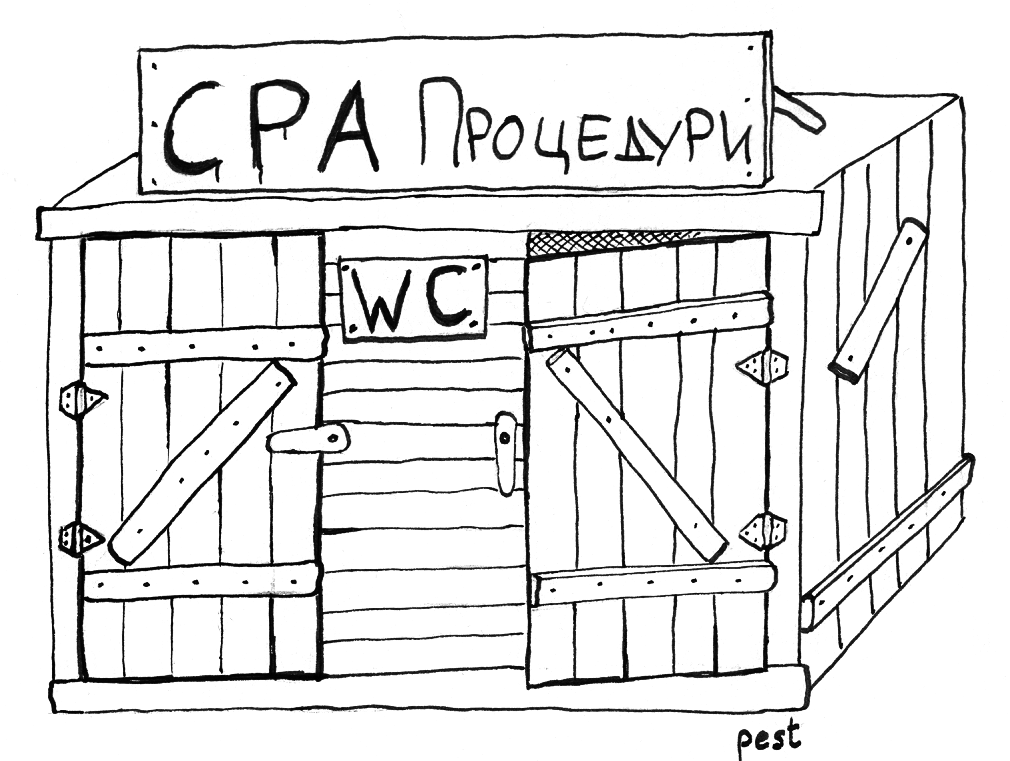 СРА ПРОЦЕДУРИ
WC
pest